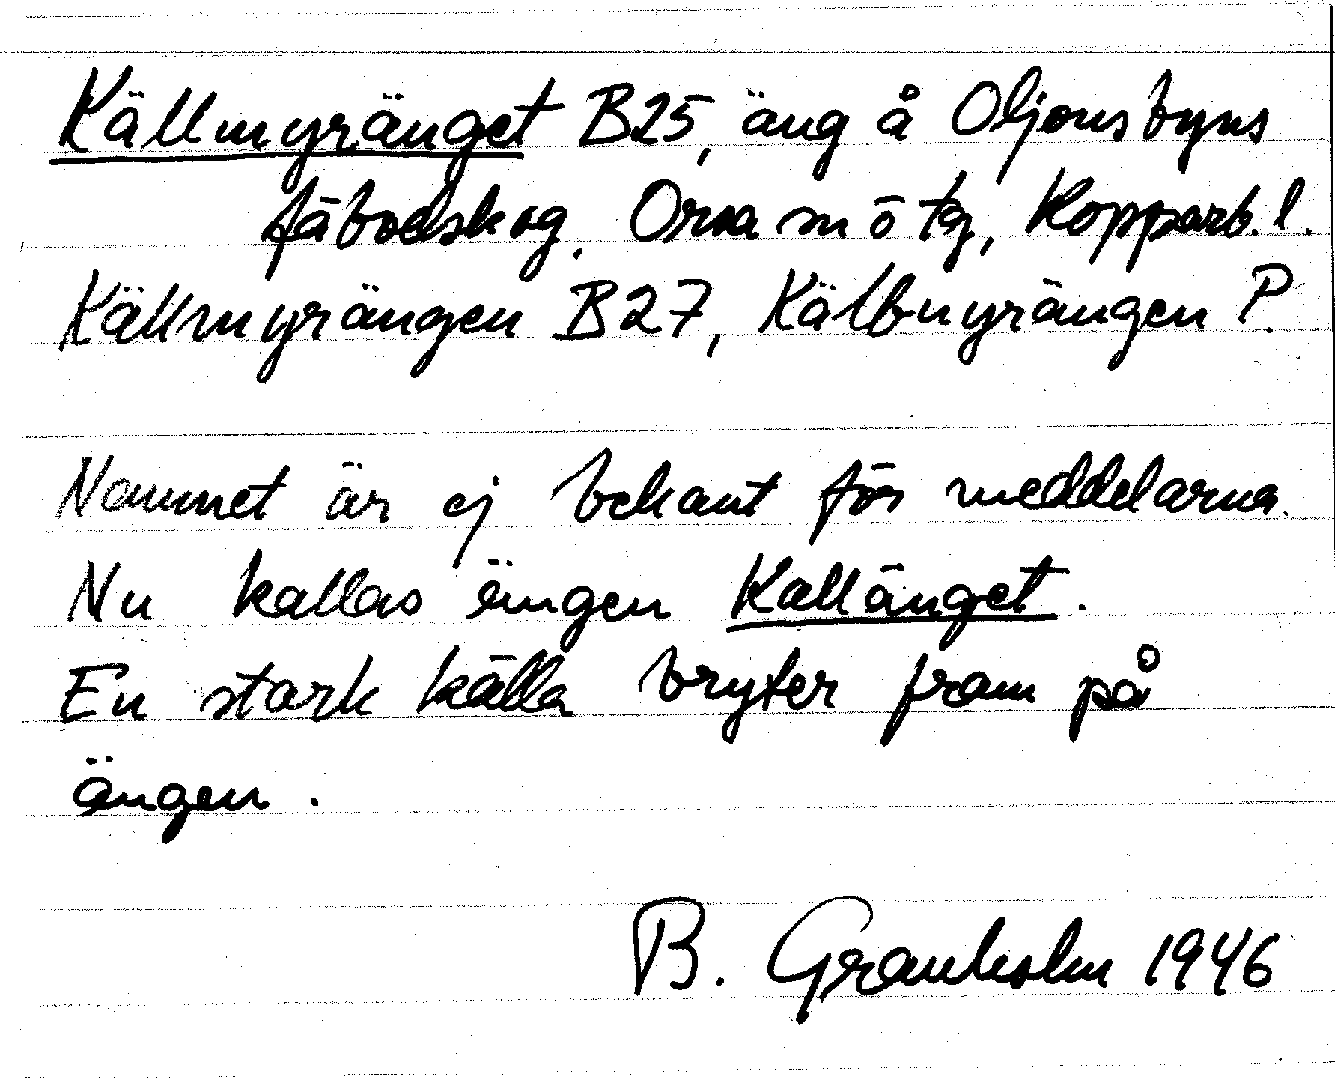 Källmyränget B25, äng å Oljonsbyns
fäbodskog. Orsa sn ö tg, Kopparb. l.
Källmyrängen B27, Källmyrängen P.
Namnet är ej bekant för meddelarna.
Nu kallas ängen Kallänget.
En stark källa bryter fram på
ängen.
B. Granholm 1946